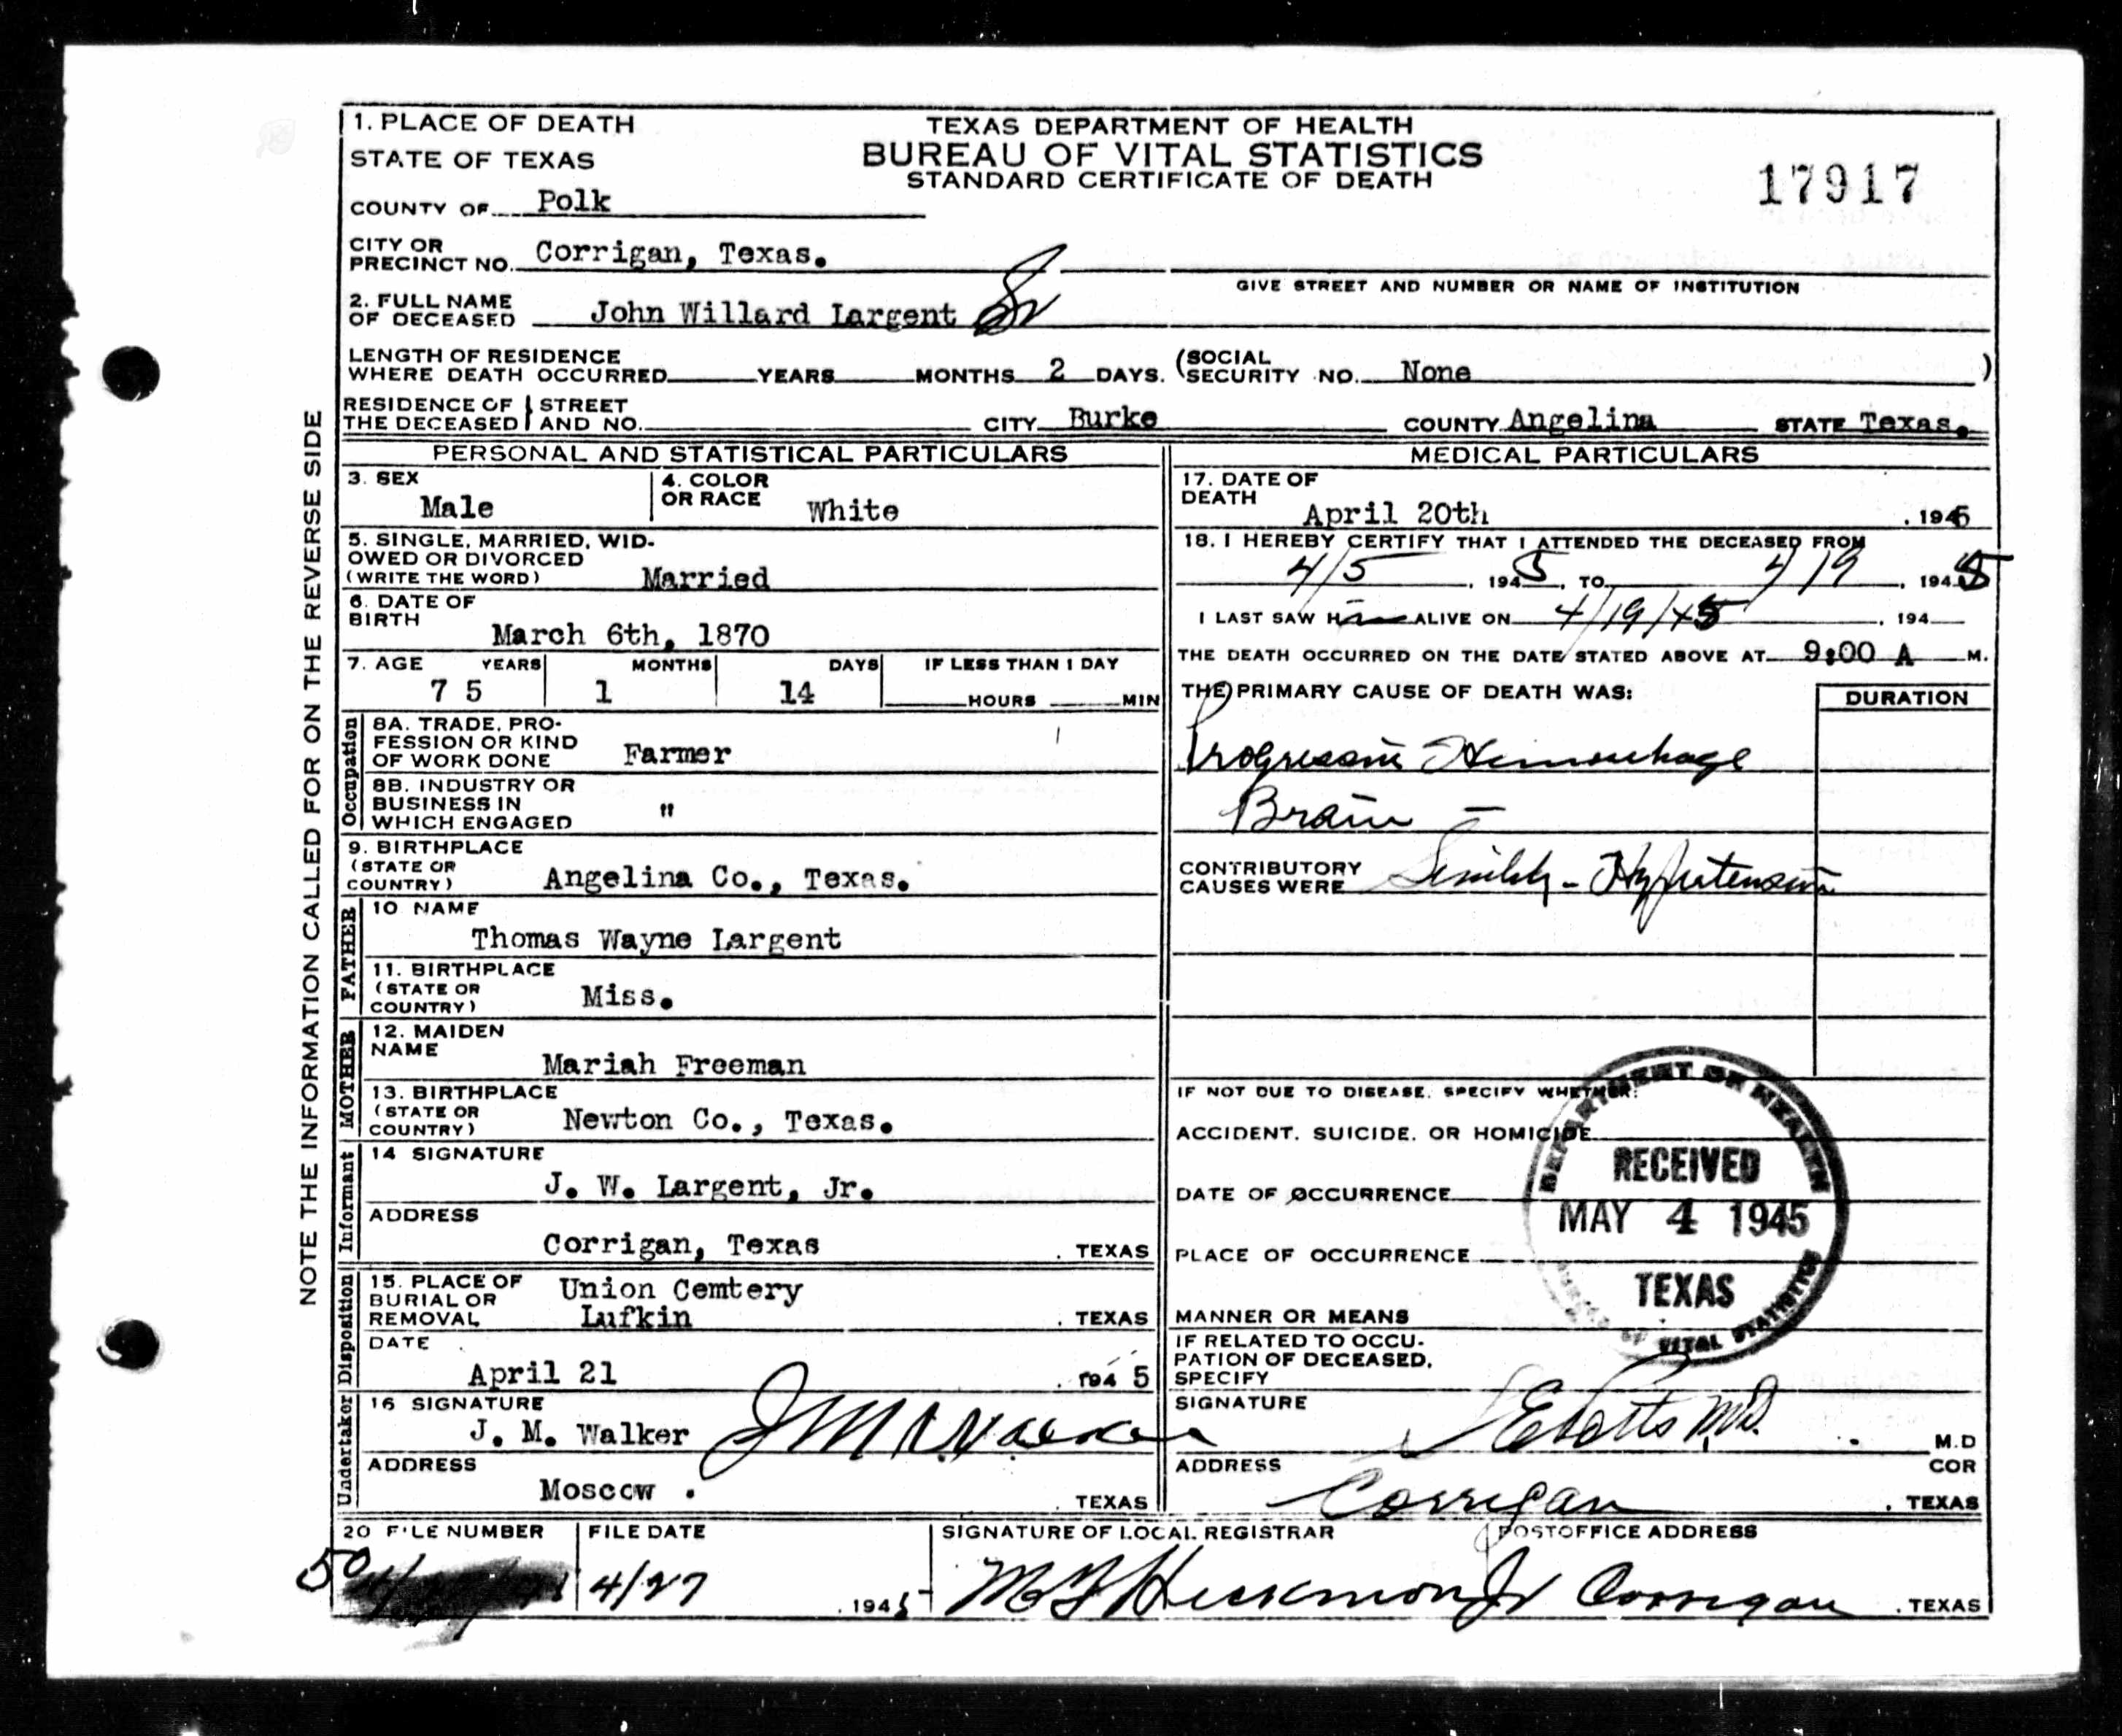 1. PLACE OF DEATH
STATE OF TEXAS
COUNTY OF Polk
TEXAS DEPARTMENT OF HEALTH
BUREAU OF VITAL STATISTICS
STANDARD CERTIFICATE OF DEATH
17917
CITY OR
PRECINCT NO. Corrigan, Texas.
GIVE STREET AND NUMBER OR NAME OF INSTITUTION
2. FULL NAME
OF DECEASED John Willard Largent Sr
LENGTH OF RESIDENCE
WHERE DEATH OCCURRED YEARS MONTHS 2 DAYS.
(SOCIAL
SECURITY NO. None )
RESIDENCE OF THE DECEASED
STREET AND NO. CITY Burke COUNTY Angelina STATE Texas.
NOTE THE INFORMATION CALLED FOR ON THE REVERSE SIDE
PERSONAL AND STATISTICAL PARTICULARS
3. SEX
Male
4. COLOR
OR RACE White
5. SINGLE, MARRIED, WID-
OWED OR DIVORCED
(WRITE THE WORD) Married
6. DATE OF
BIRTH March 6th, 1870
7. AGE YEARS MONTHS DAYS IF LESS THAN 1 DAY
7 5 1 14 HOURS MIN
Occupation
8A. TRADE, PRO-
FESSION OR KIND
OF WORK DONE Farmer
8B. INDUSTRY OR
BUSINESS IN
WHICH ENGAGED "
9. BIRTHPLACE
(STATE OR
COUNTRY) Angelina Co., Texas.
FATHER
10 NAME
Thomas Wayne Largent
11. BIRTHPLACE
(STATE OR
COUNTRY) Miss.
MOTHER
12. MAIDEN
NAME
Mariah Freeman
13. BIRTHPLACE
(STATE OR
COUNTRY) Newton Co., Texas.
Informant
14 SIGNATURE
J. W. Largent, Jr.
ADDRESS
Corrigan, Texas . TEXAS
Disposition
15. PLACE OF
BURIAL OR
REMOVAL
Union Cemtery
Lufkin . TEXAS
DATE
April 21 . 194 5
Undertaker
16 SIGNATURE
J. M. Walker J M Walker
ADDRESS
Moscow . . TEXAS
MEDICAL PARTICULARS
17. DATE OF
DEATH April 20th , 1945
18. I HEREBY CERTIFY THAT I ATTENDED THE DECEASED FROM
4/5 , 1945, TO 4/19 , 1945
I LAST SAW Him ALIVE ON 4/19/45 , 194
THE DEATH OCCURRED ON THE DATE STATED ABOVE AT 9:00 A M.
THE PRIMARY CAUSE OF DEATH WAS:
DURATION
Progressive Hemorrhage
Brain
CONTRIBUTORY
CAUSES WERE Senility - Hypertension
IF NOT DUE TO DISEASE, SPECIFY WHETHER:
ACCIDENT, SUICIDE, OR HOMICIDE
DATE OF OCCURRENCE
PLACE OF OCCURRENCE
MANNER OR MEANS
IF RELATED TO OCCU-
PATION OF DECEASED,
SPECIFY
DEPARTMENT OF HEALTH
RECEIVED
MAY 4 1945
TEXAS
BUREAU OF VITAL STATISTICS
SIGNATURE M.D.
M.D
ADDRESS COR
Corrigan , TEXAS
20 FILE NUMBER
50
FILE DATE
4/27 , 1945
SIGNATURE OF LOCAL REGISTRAR
POSTOFFICE ADDRESS
Jr Corrigan . TEXAS